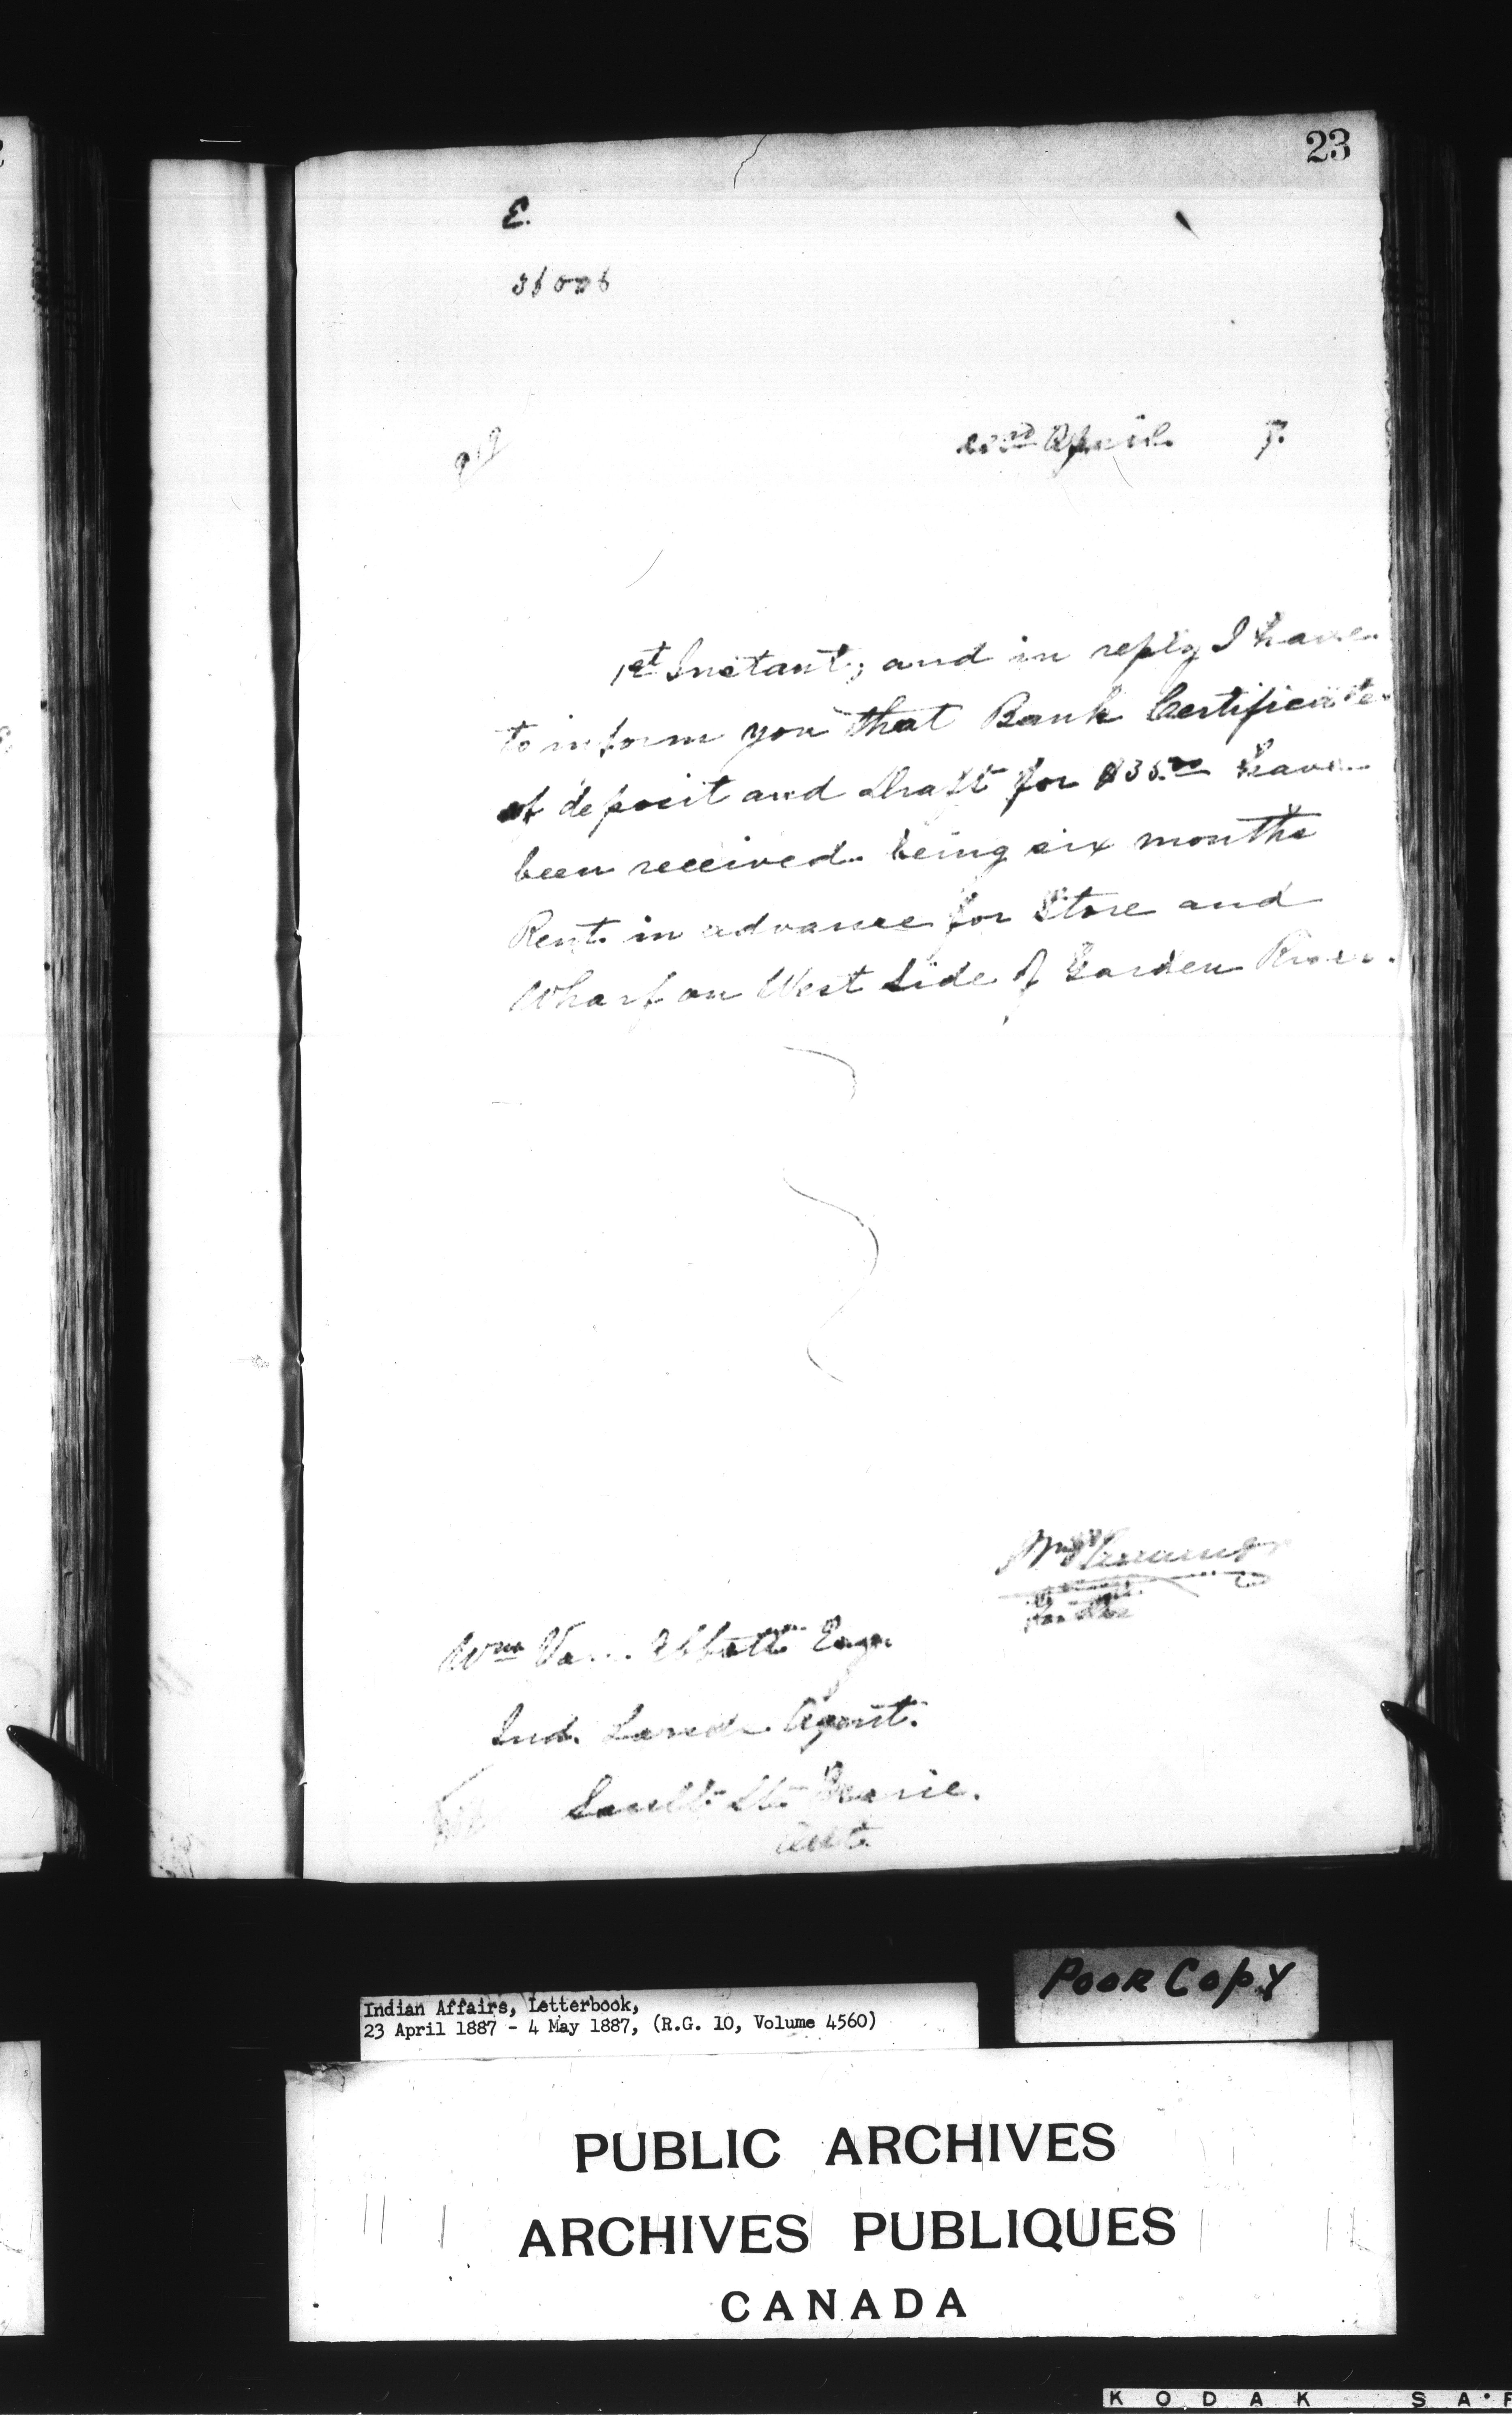 23
E.
23rd April 7.
1st Instant; and in reply I have
to inform you that Bank Certificate
of deposit and draft for $35.00 have
been received being six months
Rent in advance for Store and
Wharf on West Side of Garden River.
Wm Van Abbott Esqr.
Ind. Lands Agent.
Sault Ste. Marie.
Ont.
POOR COPY
Indian Affairs, Letterbook,
23 April 1887 - 4 May 1887, (R.G. 10, Volume 4560)
PUBLIC ARCHIVES
ARCHIVES PUBLIQUES
CANADA
KODAK SA